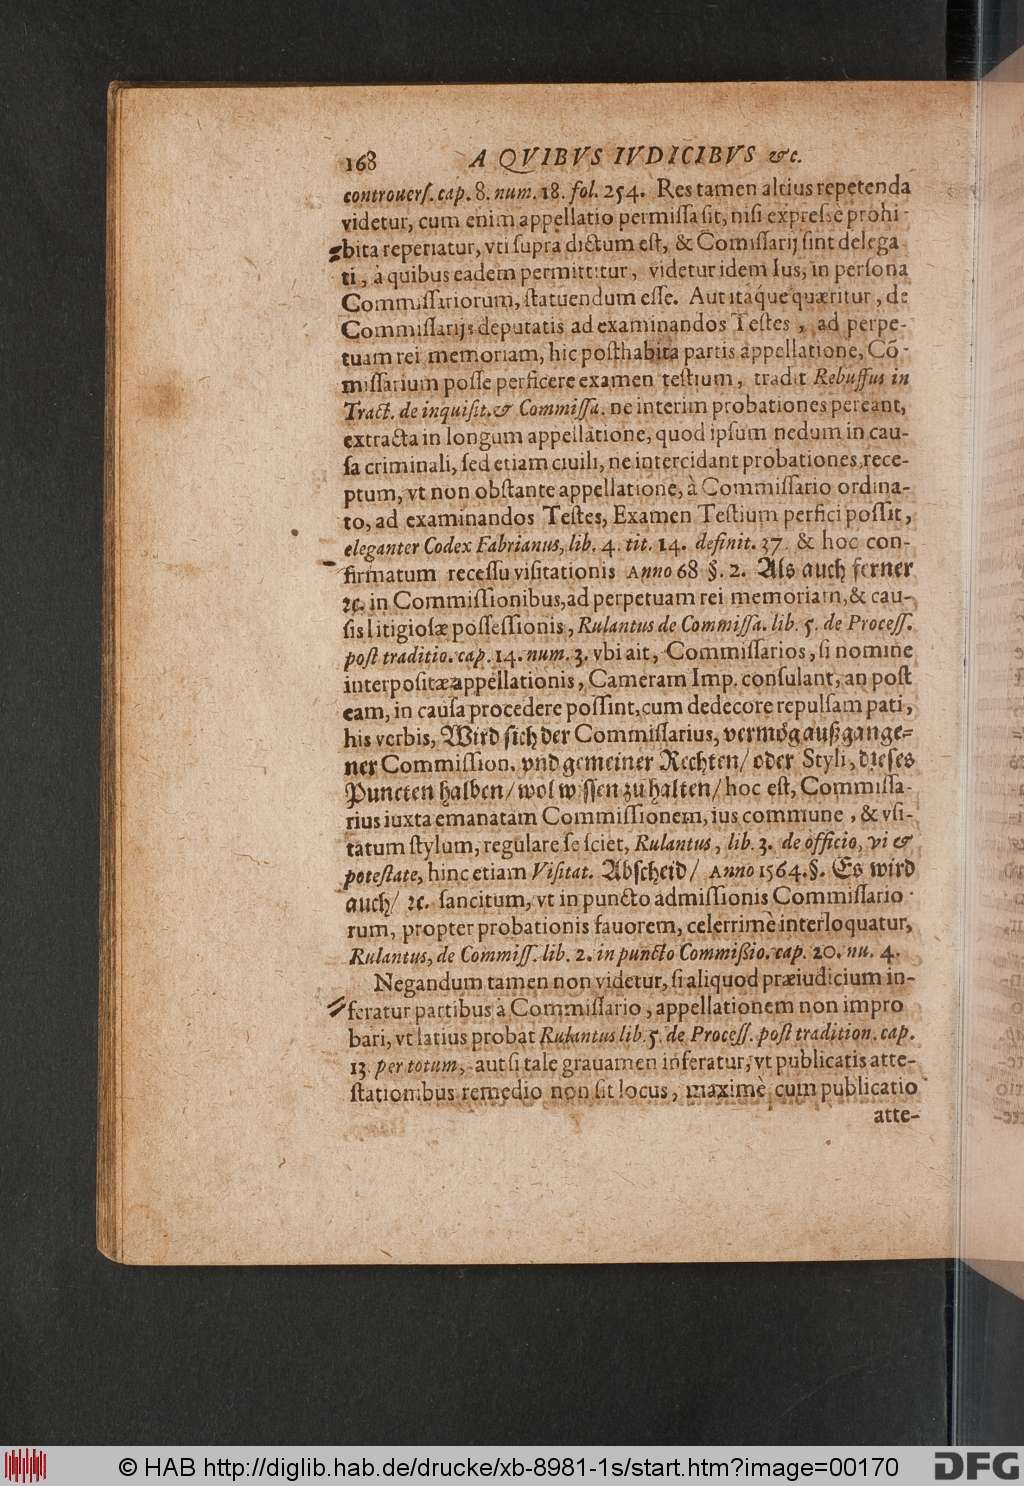 168 A QVIBVS IVDICIBVS &c.
controuerſ. cap. 8. num. 18. fol. 254. Res tamen altius repetenda
videtur, cum enim appellatio permiſſa ſit, niſi expreſse prohi-
bita reperiatur, vti ſupra dictum eſt, & Comiſſarij ſint delega
ti, à quibus eadem permittitur, videtur idem Ius, in perſona
Commiſſariorum, ſtatuendum eſſe. Aut itáq́ue quæritur, de
Commiſſarijs deputatis ad examinandos Teſtes, ad perpe-
tuam rei memoriam, hic poſthabita partis appellatione, Cõ-
miſſarium poſſe perficere examen teſtium, tradit Rebuffus in
Tract. de inquiſit. & Commiſſa. ne interim probationes pereant,
extracta in longum appellatione, quod ipſum nedum in cau-
ſa criminali, ſed etiam ciuili, ne intercidant probationes, rece-
ptum, vt non obſtante appellatione, à Commiſſario ordina-
to, ad examinandos Teſtes, Examen Teſtium perfici poſſit,
eleganter Codex Fabrianus, lib. 4. tit. 14. definit. 37. & hoc con-
firmatum receſſu viſitationis Anno 68 §. 2. Als auch ferner
ꝛc. in Commiſſionibus, ad perpetuam rei memoriam, & cau-
ſis litigioſæ poſſeſſionis, Rulantus de Commiſſa. lib. 5. de Proceſſ.
poſt traditio. cap. 14. num. 3. vbi ait, Commiſſarios, ſi nomine
interpoſitæ appellationis, Cameram Imp. conſulant, an poſt
eam, in cauſa procedere poſſint, cum dedecore repulſam pati,
his verbis, Wird ſich der Commiſſarius, vermög außgange-
ner Commiſſion. vnd gemeiner Rechten/ oder Styli, dieſes
Puncten halben/ wol wiſſen zu halten/ hoc eſt, Commiſſa-
rius iuxta emanatam Commiſſionem, ius commune, & vſi-
tatum ſtylum, regulare ſe ſciet, Rulantus, lib. 3. de officio, vi &
poteſtate, hinc etiam Viſitat. Abſcheid/ Anno 1564. §. Es wird
auch/ ꝛc. ſancitum, vt in puncto admiſſionis Commiſſario-
rum, propter probationis fauorem, celerrimè interloquatur,
Rulantus, de Commiſſ. lib. 2. in puncto Commißio. cap. 20. nu. 4.
Negandum tamen non videtur, ſi aliquod præiudicium in-
feratur partibus à Commiſſario, appellationem non impro
bari, vt latius probat Rulantus lib. 5. de Proceſſ. poſt tradition. cap.
13. per totum, aut ſi tale grauamen inferatur, vt publicatis atte-
ſtationibus remedio non ſit locus, maximè cum publicatio
atte-
© HAB http://diglib.hab.de/drucke/xb-8981-1s/start.htm?image=00170
DFG